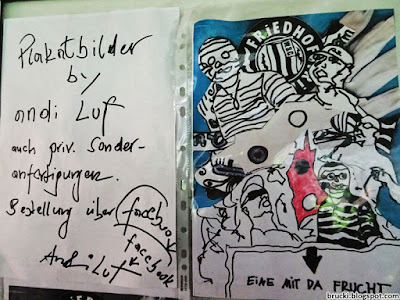 Plakatbilder
by
andi Luf
auch priv. Sonder-
anfertigungen.
Bestellung über facebook
facebook
Andi Luf
FRIEDHOF
EINE MIT DA FRUCHT
brucki.blogspot.com